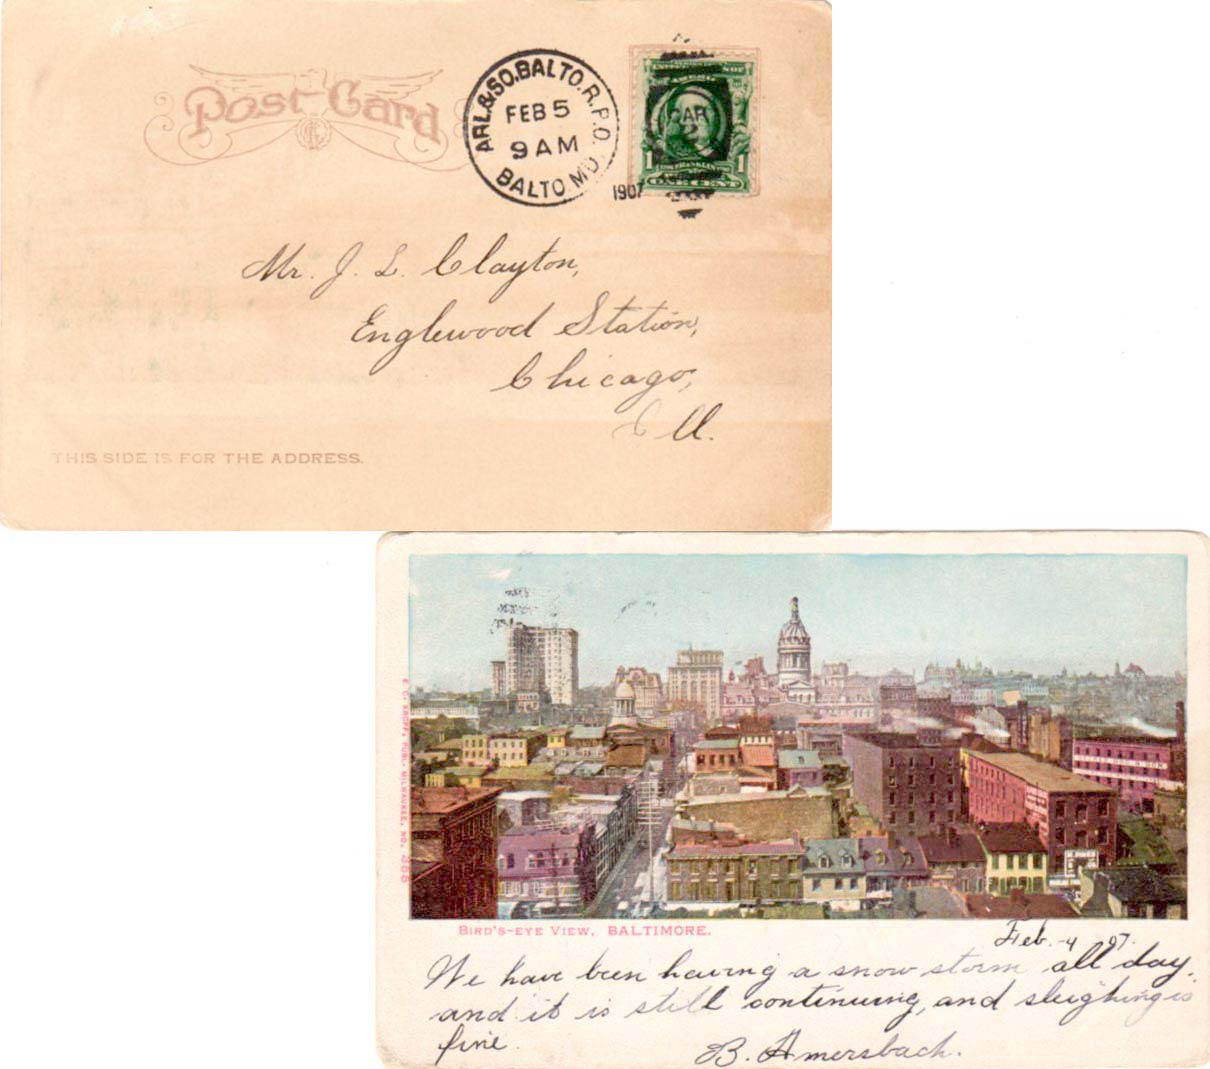 Post Card
ARL.&SO.BALTO.R.P.O.
FEB 5
9 AM
BALTO MD.
1907
CAR
2
1 1
ONE CENT
Mr. J. L. Clayton,
Englewood Station,
Chicago,
Ill.
THIS SIDE IS FOR THE ADDRESS.
E. C. KROPP, PUBL. MILWAUKEE, NO.
BIRD'S-EYE VIEW, BALTIMORE.
Feb. -4 07.
We have been having a snow storm all day,
and it is still continuing, and sleighing is
fine.
B. Amersbach.